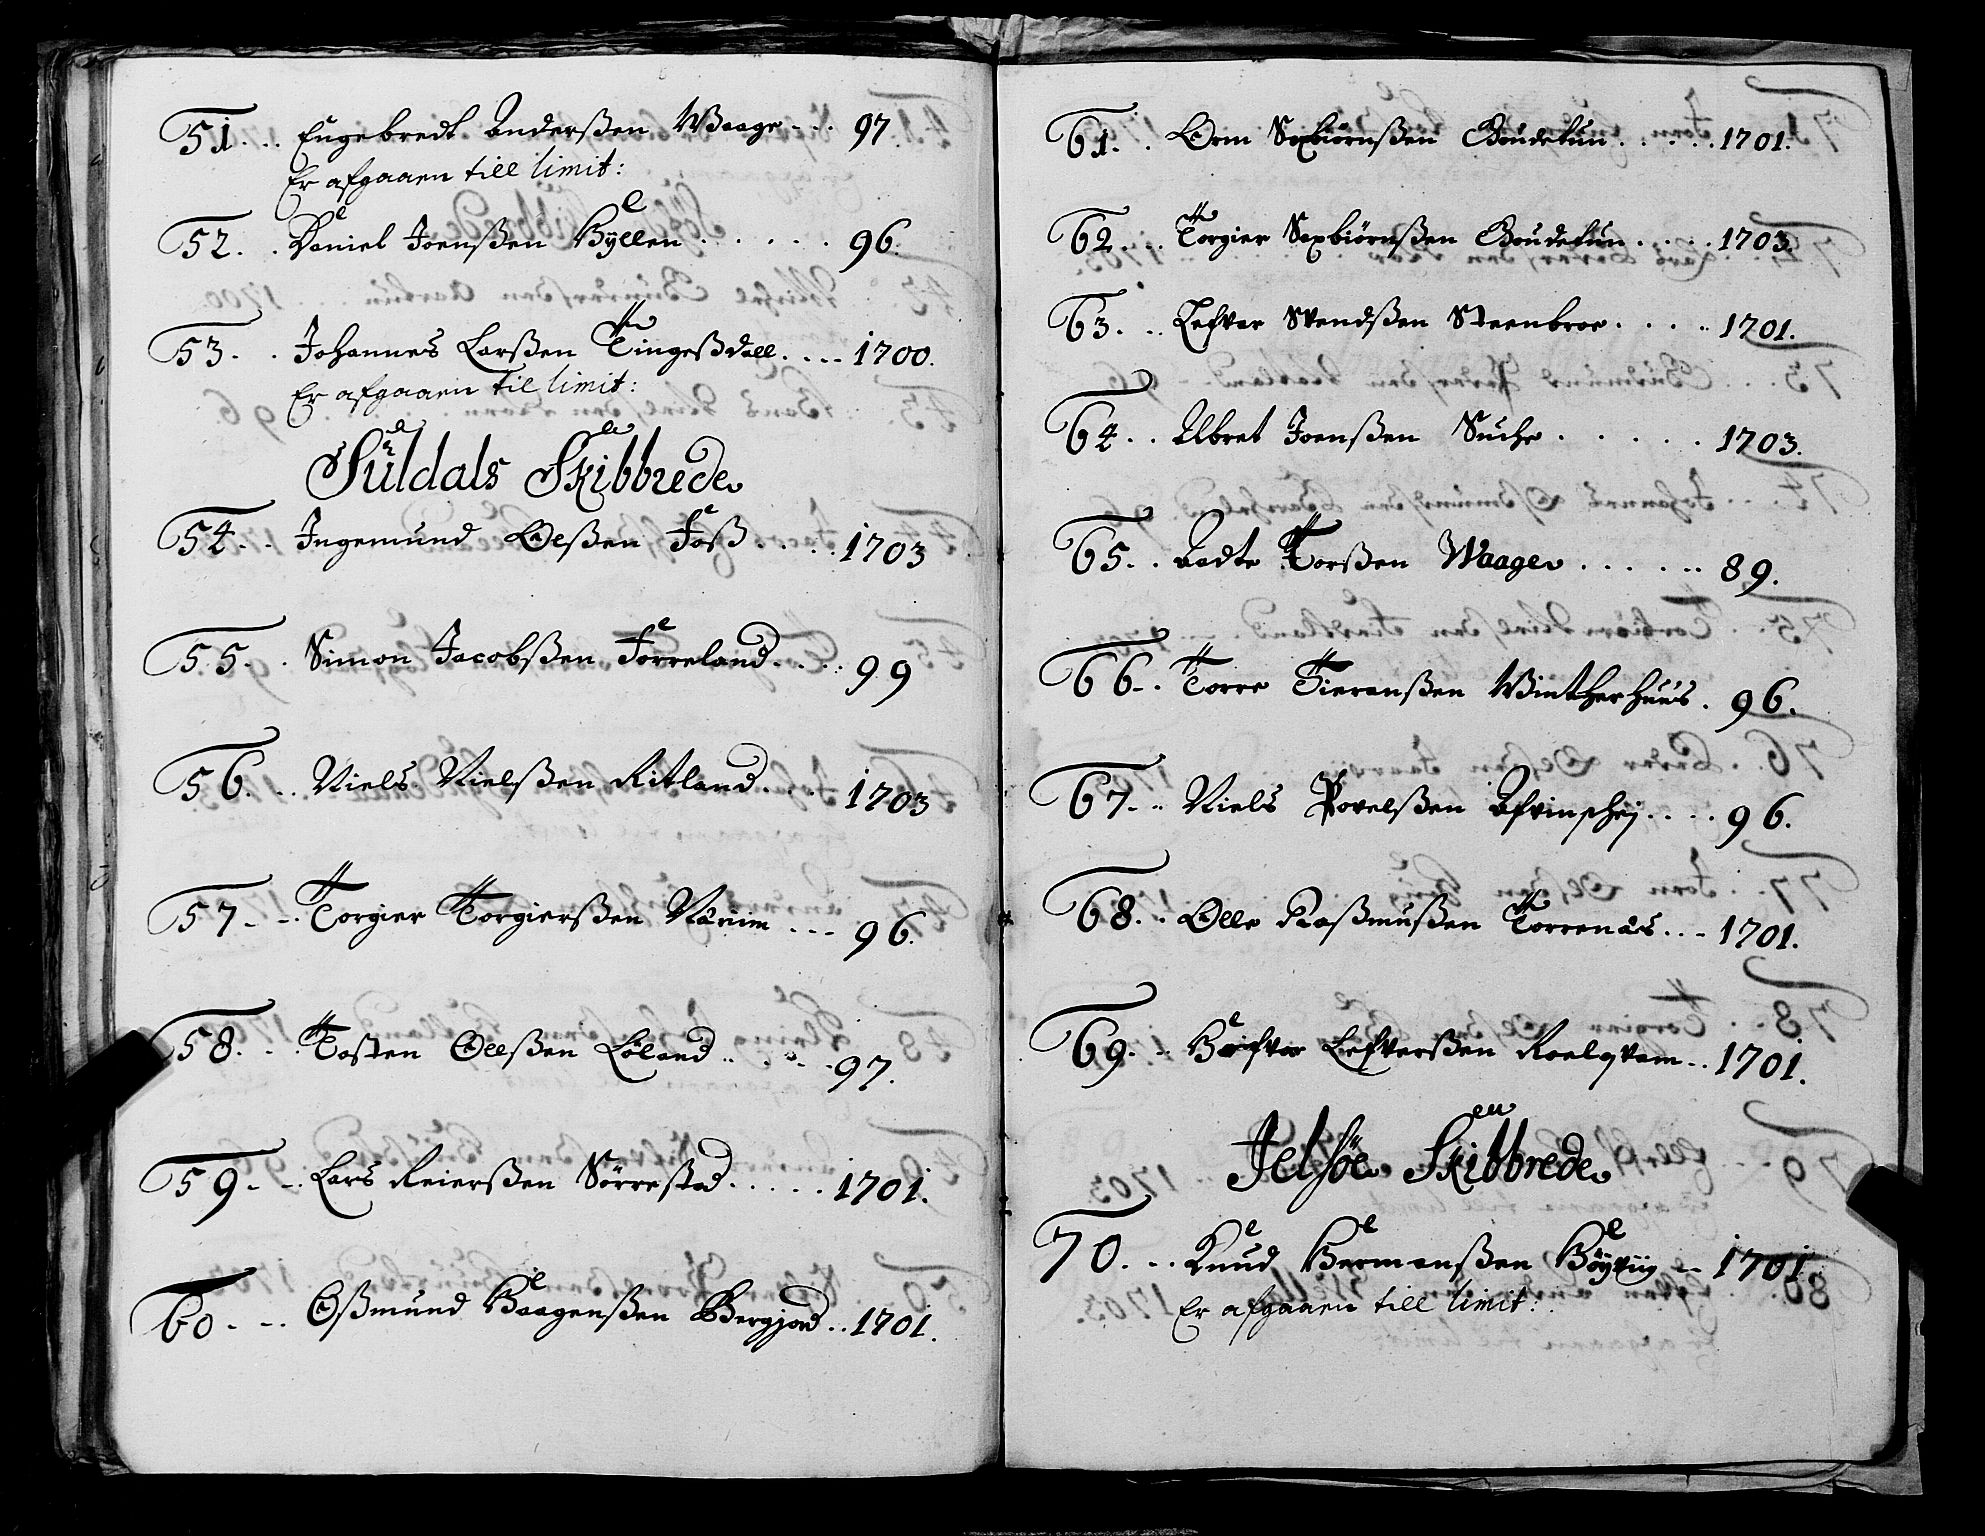 51. .. Engebredt Anderßen Waage - - . 97.
Er afgaaen till limit:
52. . Daniel Joenßen Hyllen . . . . . . 96.
53. . Johannes Larßen Tingeßdall. . - - 1700.
Er afgaaen til limit:
Suldals Skibbrede
54. . Ingemund Olßen Foß . . . . . 1703
55. . Simon Jacobßen Forreland. . . . 99
56. .. Niels Nielßen Ritland. . . . 1703
57 - -. Torgier Torgierßen Nærim . - - 96.
58. - . Tosten Olleßen Løland .. . . - . 97.
59. - -. Lars Reierßen Sørrestad. . . . . 1701.
60. - .. Oßmund Haagenßen Bergjord. .. 1701.
61. . Orm Saxbiörnßen Goudetun . . . . . 1701.
62. .. Torgier Saxbiörnßen Goudetun . . . . 1703.
63. .. Lefvar Svendßen Steenbroe. . . . .. 1701.
64. . Albret Joenßen Suche . . . . . . 1703.
65. . Aadte Torßen Waage . . . . . .. 89.
66 -. Torre Tieranßen Wintherhuus . 96.
67. .. Niels Povelßen 96.
68. .. Olle Raßmußen Torrenæs. . . - 1701.
69. .. Lefverßen Roalqvam - . 1701.
Jelsöe Skibbrede
70. . . Knud Hermanßen -- 1701.
Er afgaaen till limit: